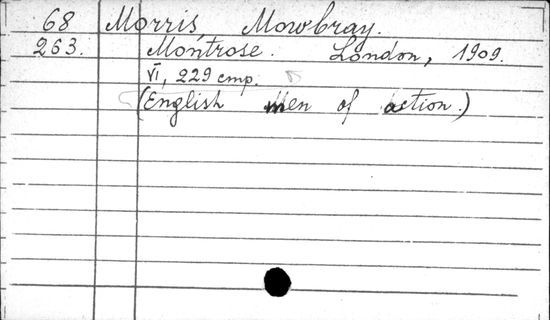 68 Morris, Mowbray.
263. Montrose. London, 1909.
VI, 229 стр.
(English Men of action.)